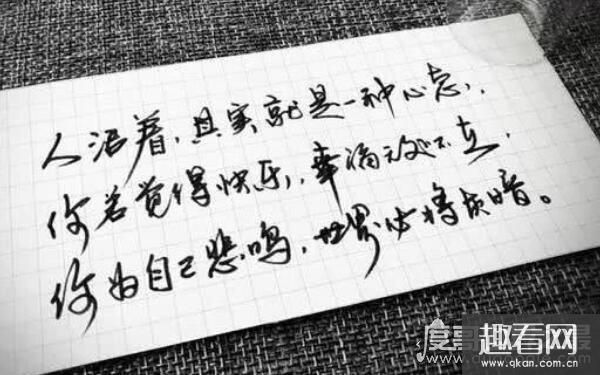 人活着，其实就是一种心态，
你若觉得快乐，幸福无处不在，
你为自己悲鸣，世界必将灰暗。
趣看网
www.qkan.com.cn